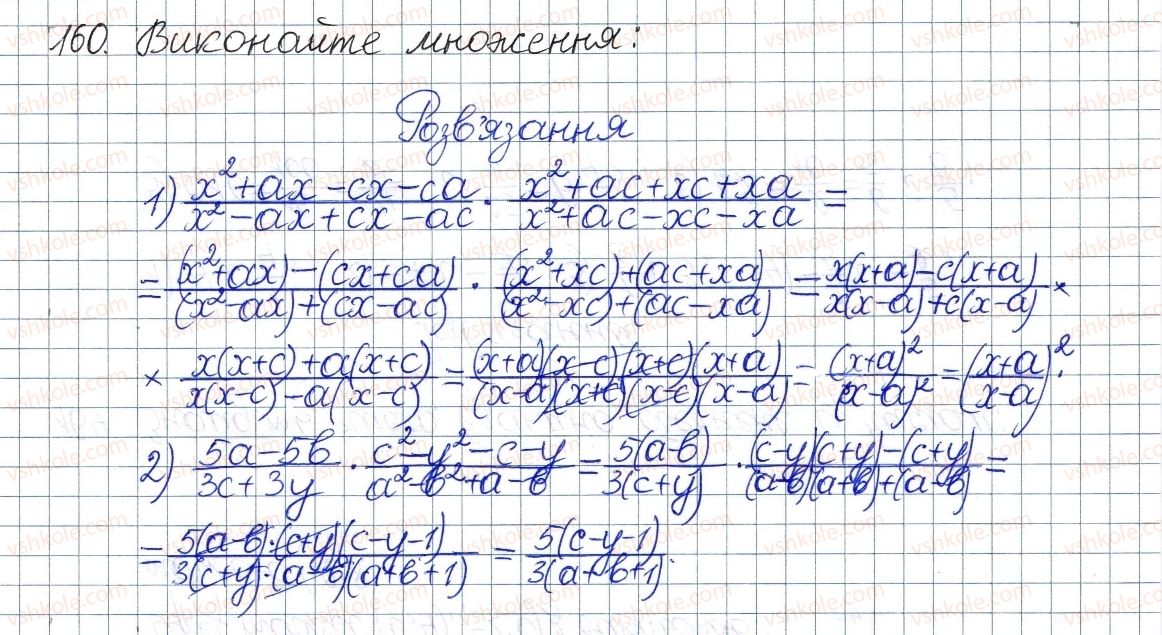 160. Виконайте множення:
Розв'язання
1) (x²+ax-cx-ca)/(x²-ax+cx-ac) · (x²+ac+xc+xa)/(x²+ac-xc-xa) =
= ((x²+ax)-(cx+ca))/((x²-ax)+(cx-ac)) · ((x²+xc)+(ac+xa))/((x²-xc)+(ac-xa)) = (x(x+a)-c(x+a))/(x(x-a)+c(x-a)) ×
× (x(x+c)+a(x+c))/(x(x-c)-a(x-c)) = ((x+a)(x-c)(x+c)(x+a))/((x-a)(x+c)(x-c)(x-a)) = (x+a)²/(x-a)² = ((x+a)/(x-a))².
2) (5a-5b)/(3c+3y) · (c²-y²-c-y)/(a²-b²+a-b) = 5(a-b)/3(c+y) · ((c-y)(c+y)-(c+y))/((a-b)(a+b)+(a-b)) =
= (5(a-b)·(c+y)(c-y-1))/(3(c+y)·(a-b)(a+b+1)) = 5(c-y-1)/3(a+b+1).